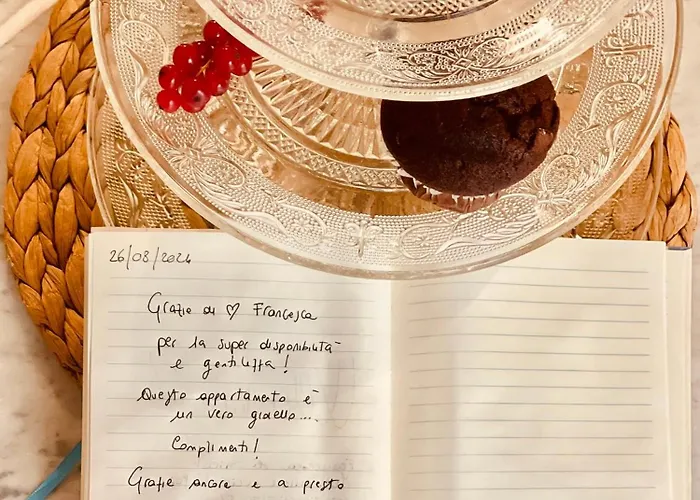 26/08/2024
Grazie di ♡ Francesca
per la super disponibilità
e gentilezza!
Questo appartamento è
un vero gioiello...
Complimenti!
Grazie ancora e a presto